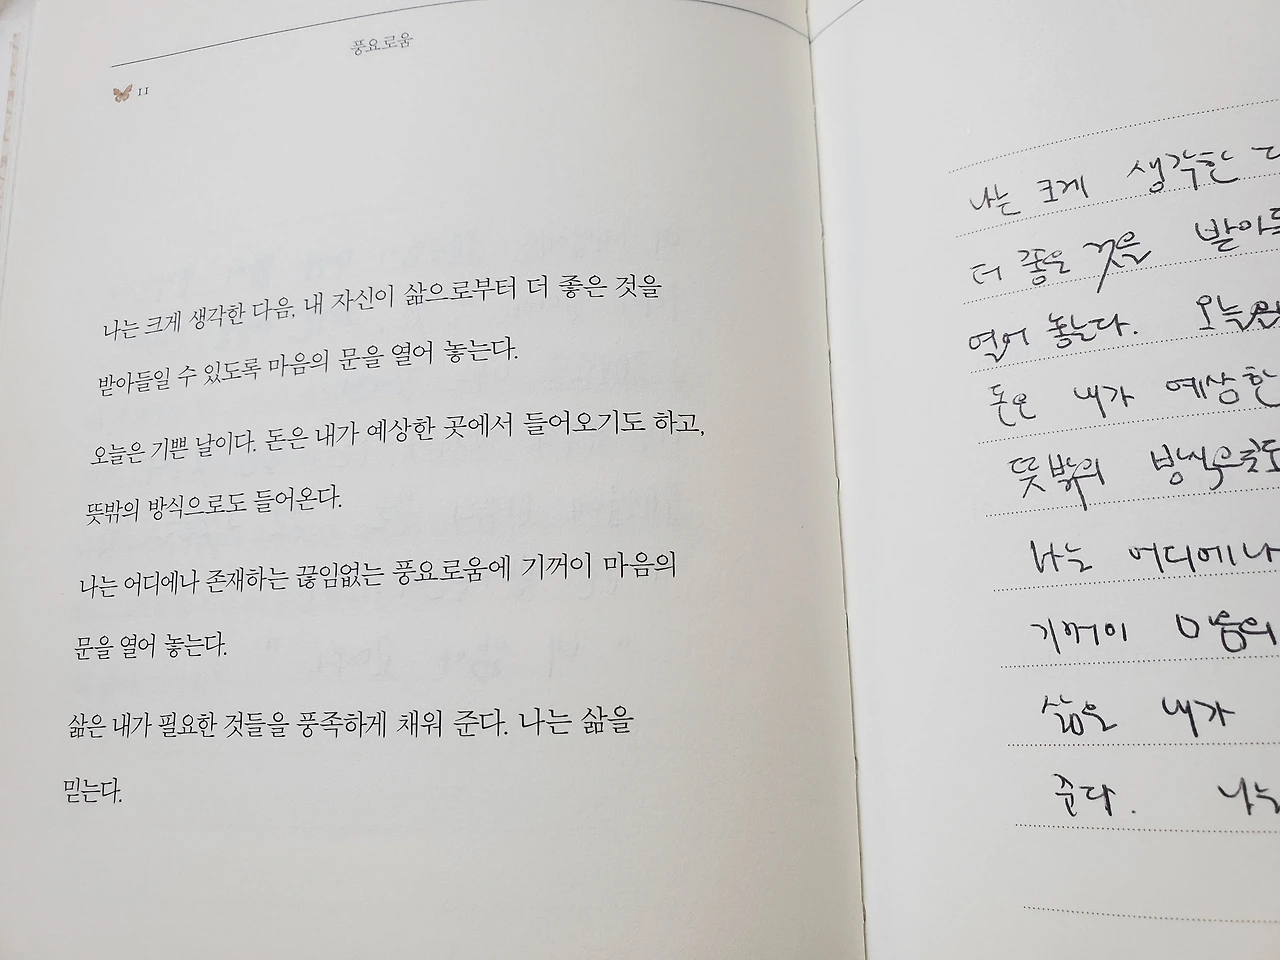 풍요로움
11
나는 크게 생각한 다음, 내 자신이 삶으로부터 더 좋은 것을
받아들일 수 있도록 마음의 문을 열어 놓는다.
오늘은 기쁜 날이다. 돈은 내가 예상한 곳에서 들어오기도 하고,
뜻밖의 방식으로도 들어온다.
나는 어디에나 존재하는 끊임없는 풍요로움에 기꺼이 마음의
문을 열어 놓는다.
삶은 내가 필요한 것들을 풍족하게 채워 준다. 나는 삶을
믿는다.
나는 크게 생각한
더 좋은 것을 받아
열어 놓는다. 오늘은
돈은 내가 예상한
뜻밖의 방식으로도
나는 어디에나
기꺼이 마음의
삶은 내가
준다. 나는